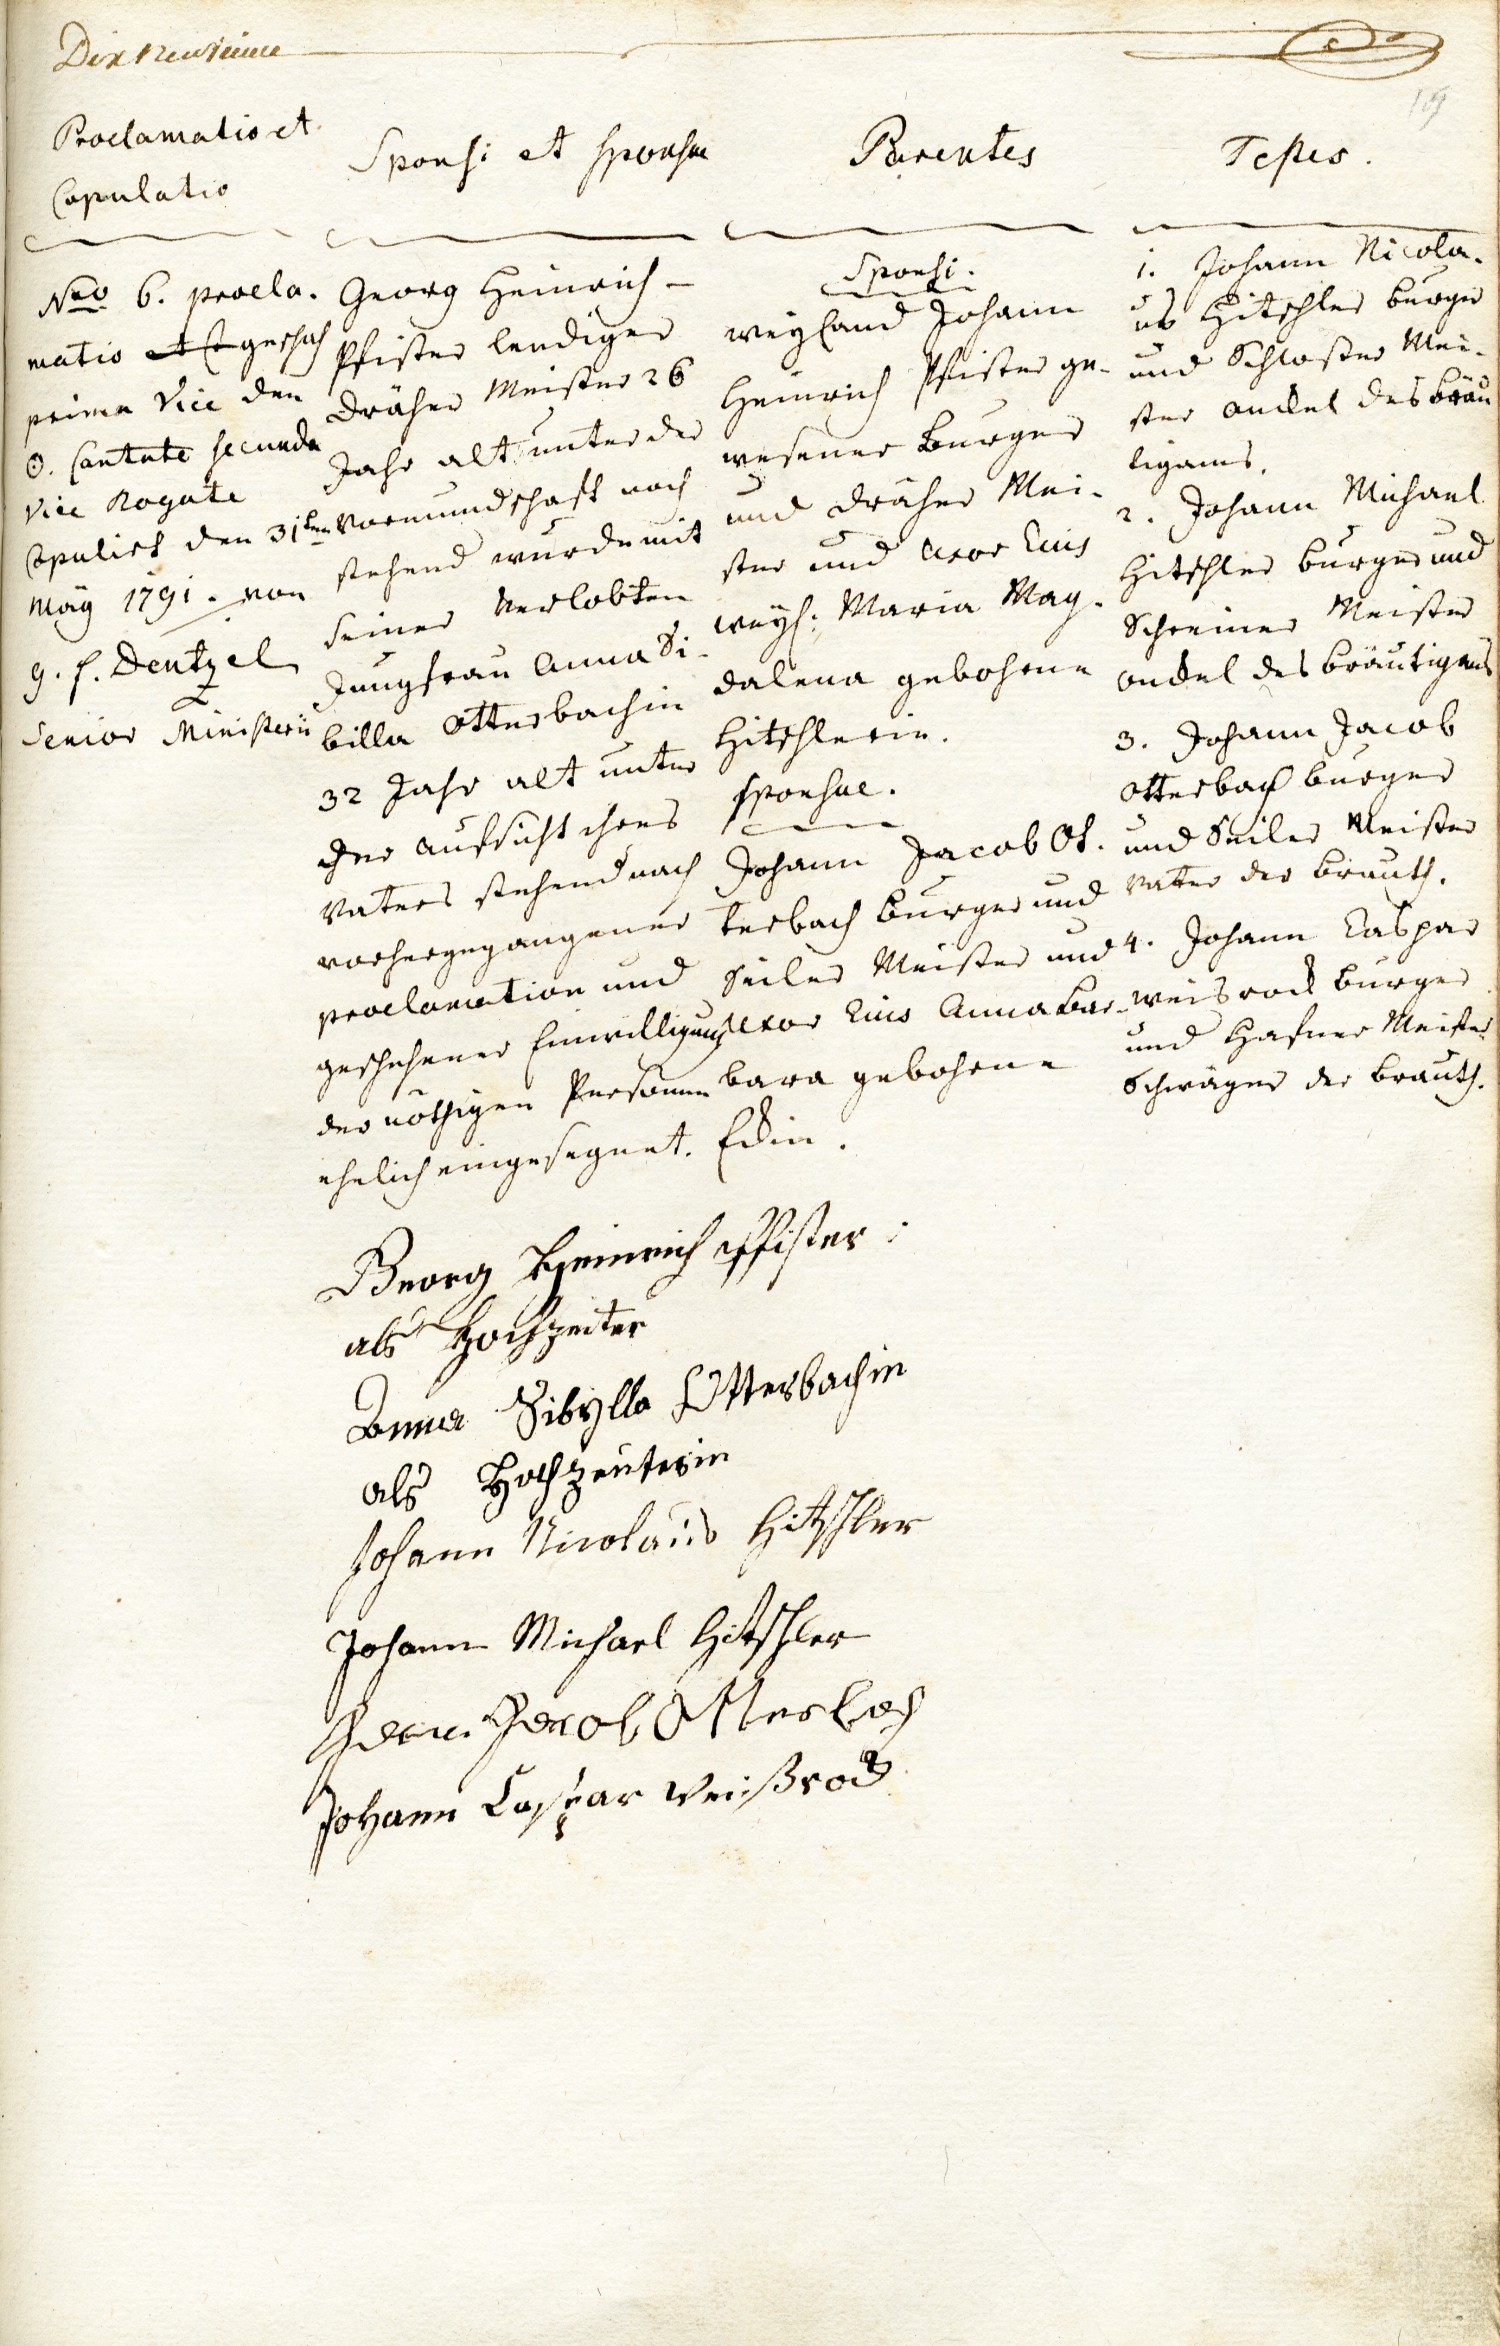 Dix neuvieme
109
Proclamatio et
Copulatio
Sponsi et Sponsae
Parentes
Testes.
Nro 6. procla-
matio et C geschah
prima Vice den
⊙. Cantate secunda
Vice Rogate
Copulirt den 31ten
May 1791. von
G. F. Dentzel
Senior Ministerii
Georg Heinrich
Pfister lediger
Dräher Meister 26
Jahr alt unter der
Vormundschaft noch
stehend wurde mit
seiner Verlobten
Jungfrau Anna Si-
billa Otterbachin
32 Jahr alt unter
der Aufsicht ihres
Vaters stehend nach
vorhergegangener
proclamation und
geschehener Einwilligung
der nöthigen Personen
ehelich eingesegnet.
Sponsi.
weyland Johann
Heinrich Pfister ge-
wesener Burger
und Dräher Mei-
ster und Uxor Eius
weyl: Maria Mag-
dalena gebohrne
Hitschlerin.
Sponsae.
Johann Jacob Ot-
terbach Burger und
Seiler Meister und
Uxor Eius Anna Bar-
bara gebohrne
Edin.
1. Johann Nicola-
us Hitschler Burger
und Schlosser Mei-
ster onckel des Bräu
tigams.
2. Johann Michael
Hitschler Burger und
Schreiner Meister
onckel des Bräutigams
3. Johann Jacob
Otterbach Burger
und Seiler Meister
Vater der Brauth.
4. Johann Caspar
Weisrock Burger
und Hafner Meister
Schwager der Brauth.
Georg Heinrich Pfister
als Hochzeiter
Anna Sibylla Otterbachin
als Hochzeiterin
Johann Nicolaus Hitschler
Johann Michael Hitschler
Jacob Otterbach
Johann Caspar Weißrock